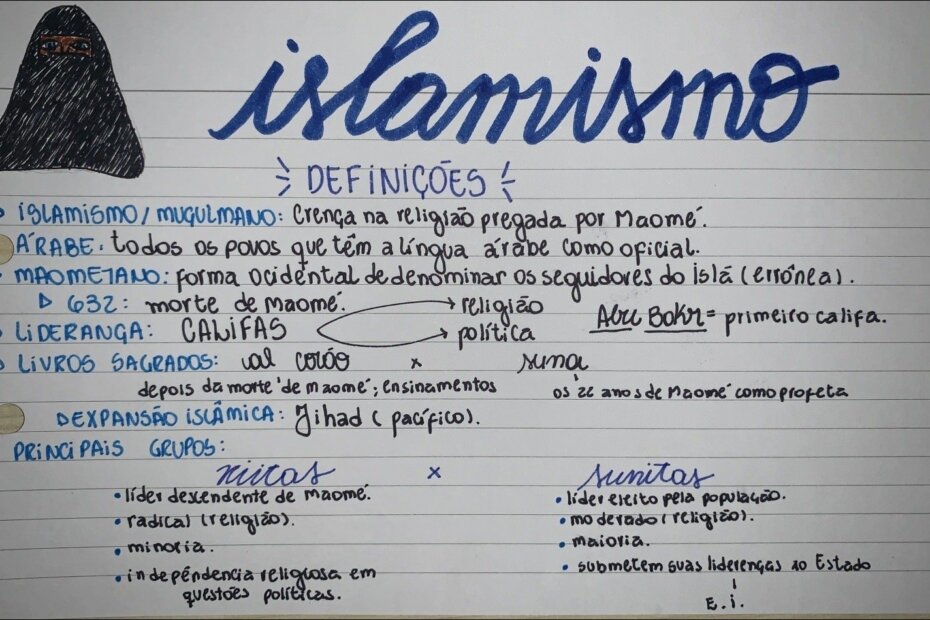 islamismo
DEFINIÇÕES
ISLAMISMO/MUÇULMANO: Crença na religião pregada por Maomé.
ÁRABE: todos os povos que têm a língua árabe como oficial.
MAOMETANO: forma ocidental de denominar os seguidores do islã (errônea).
632: morte de Maomé.
religião
LIDERANÇA: CALIFAS
política
Abu Bakr = primeiro califa.
LIVROS SAGRADOS: al corão x suna
depois da morte de maomé; ensinamentos
os 22 anos de Maomé como profeta
EXPANSÃO ISLÂMICA: Jihad (pacífico).
PRINCIPAIS GRUPOS:
xiitas x sunitas
• líder descendente de maomé.
• radical (religião).
• minoria.
• independência religiosa em
questões políticas.
• líder eleito pela população.
• moderado (religião).
• maioria.
• submetem suas lideranças ao Estado
E.I.